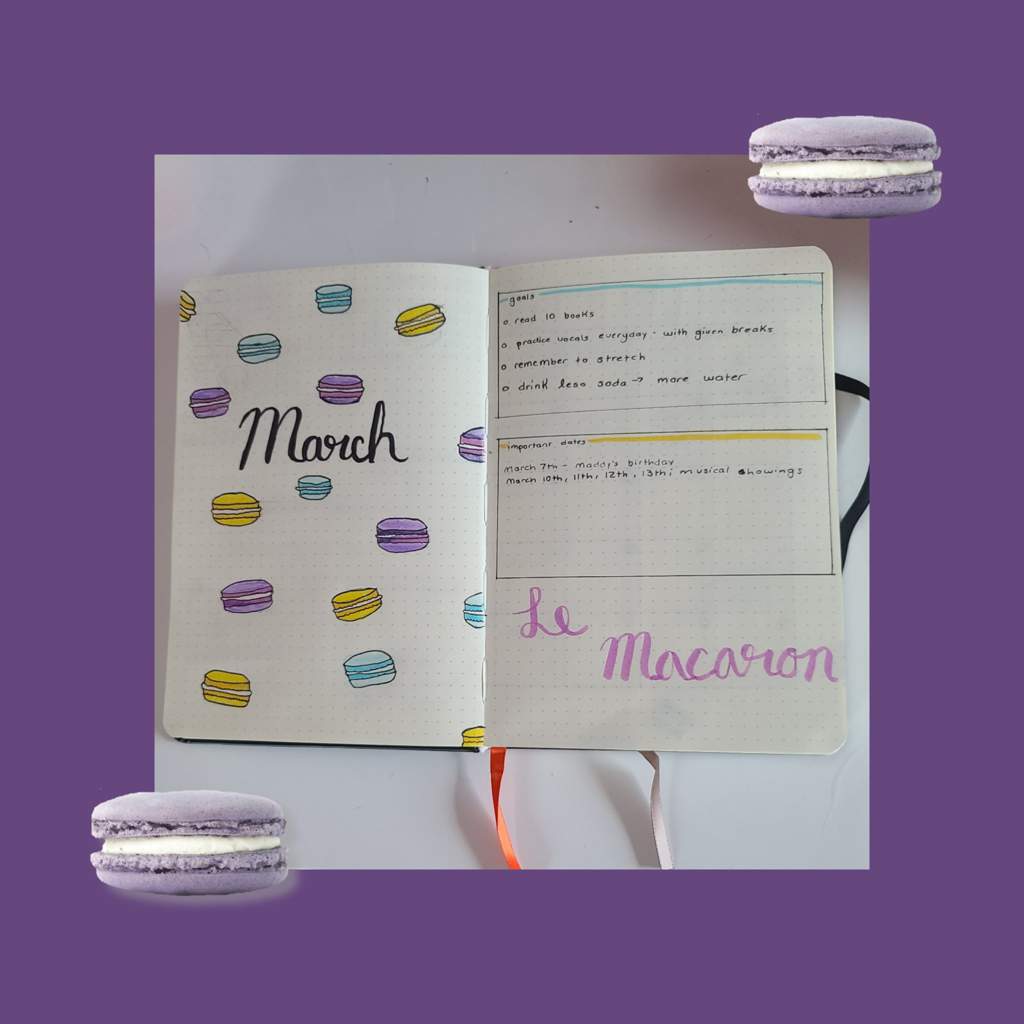 March
goals
o read 10 books
o practice vocals everyday - with given breaks
o remember to stretch
o drink less soda → more water
important dates
march 7th - maddy's birthday
march 10th, 11th, 12th, 13th; musical showings
Le
Macaron